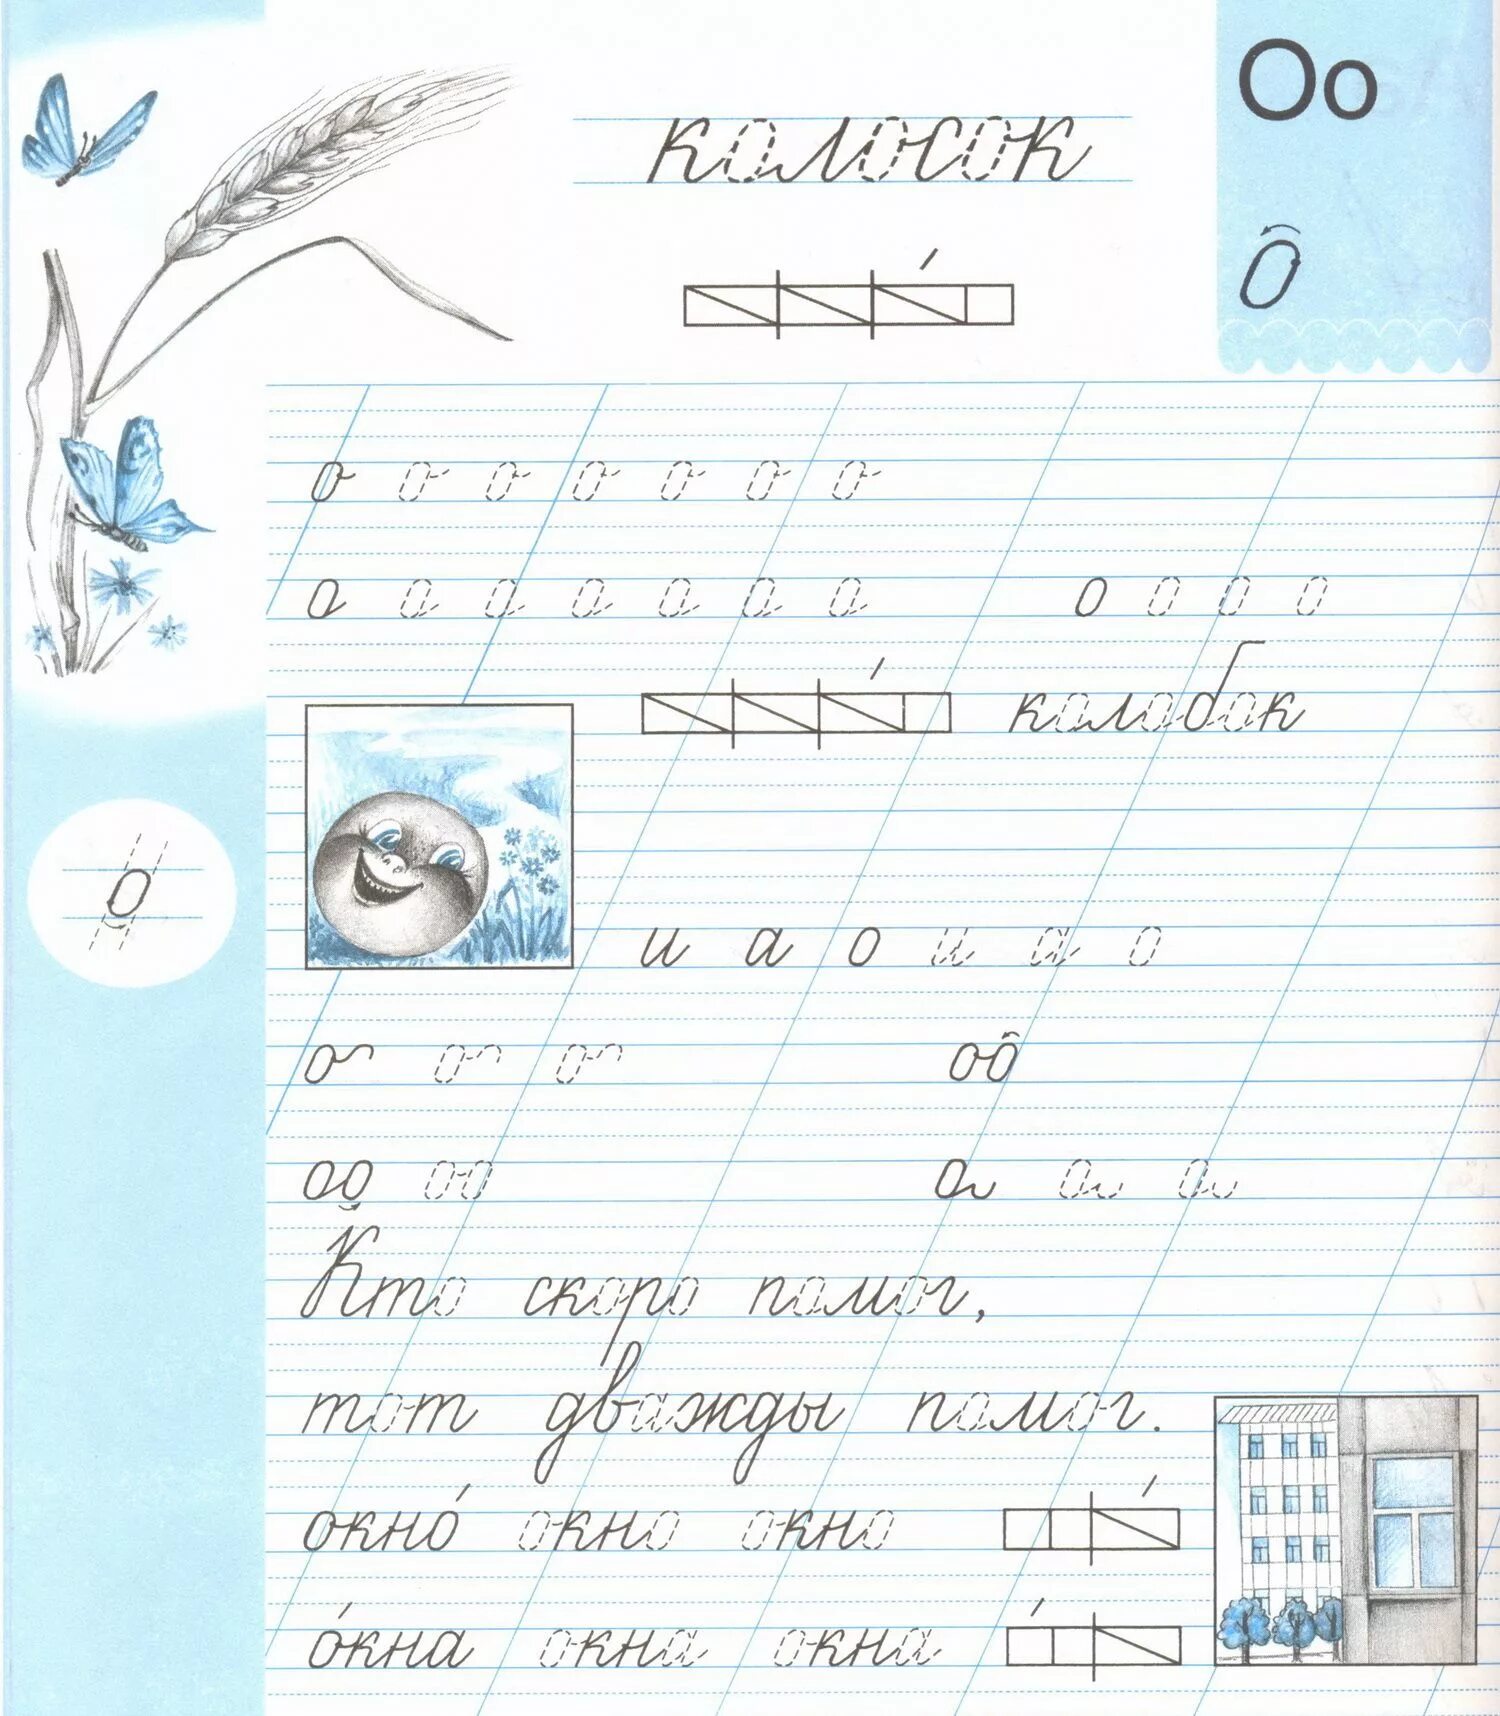 Оо
колосок
О
о о о о о о о
о о о о о о о о о о о
колобок
о
и а о и а о
о о о оо
оо оо о о о
Кто скоро помог,
тот дважды помог.
окно́ окно окно
о́кна окна окна